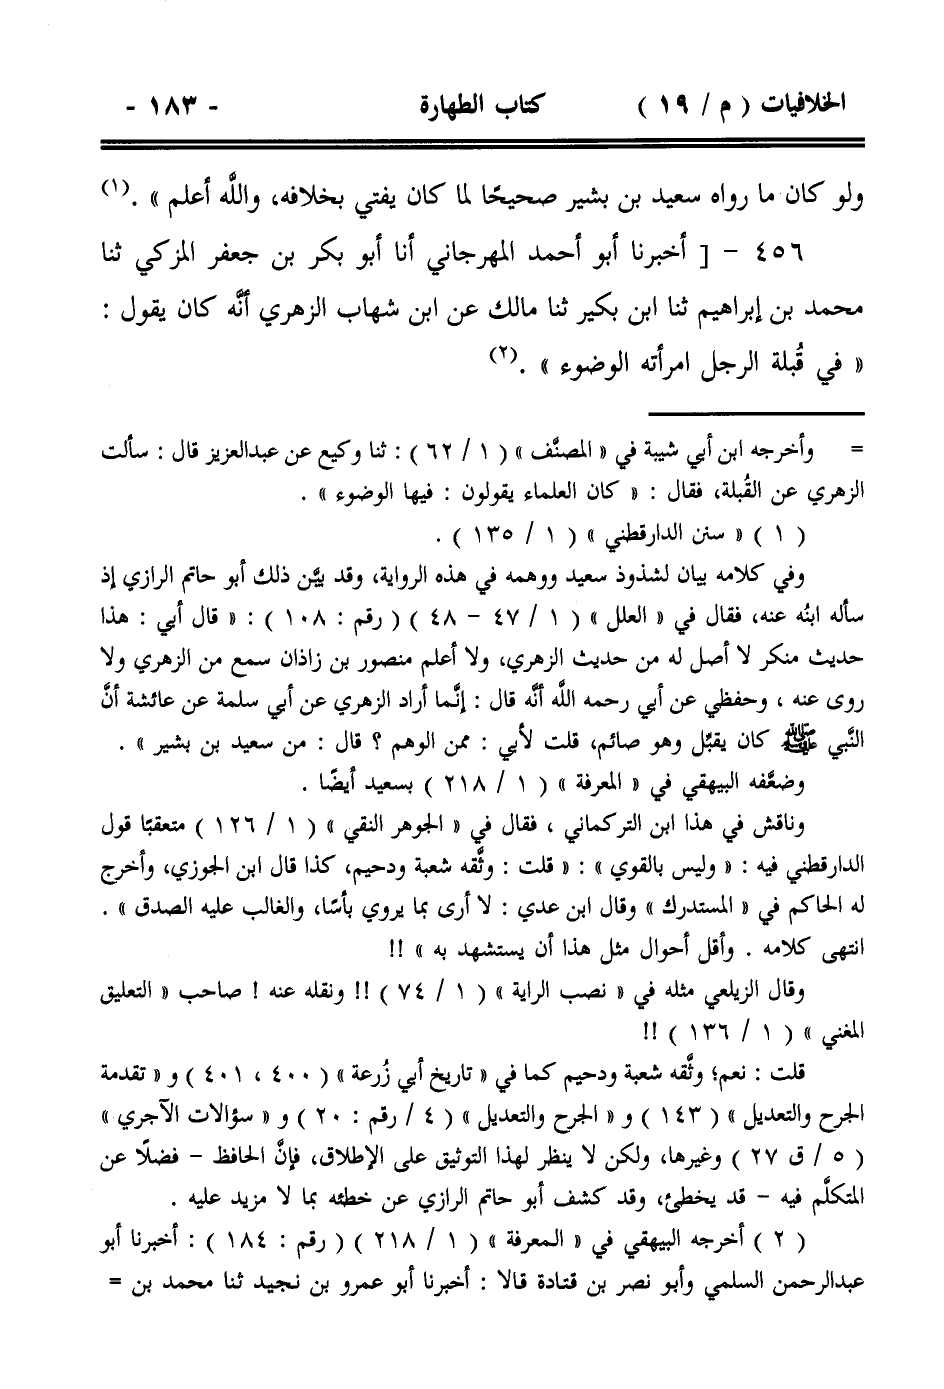 الخلافيات ( م / ١٩ ) كتاب الطهارة - ١٨٣ -
ولو كان ما رواه سعيد بن بشير صحيحًا لما كان يفتي بخلافه، واللَّه أعلم » .(١)
٤٥٦ - [ أخبرنا أبو أحمد المهرجاني أنا أبو بكر بن جعفر المزكي ثنا
محمد بن إبراهيم ثنا ابن بكير ثنا مالك عن ابن شهاب الزهري أنَّه كان يقول :
« في قُبلة الرجل امرأته الوضوء » .(٢)
= وأخرجه ابن أبي شيبة في « المصنَّف » ( ١ / ٦٢ ) : ثنا وكيع عن عبدالعزيز قال : سألت
الزهري عن القُبلة، فقال : « كان العلماء يقولون : فيها الوضوء » .
( ١ ) « سنن الدارقطني » ( ١ / ١٣٥ ) .
وفي كلامه بيان لشذوذ سعيد ووهمه في هذه الرواية، وقد بيَّن ذلك أبو حاتم الرازي إذ
سأله ابنُه عنه، فقال في « العلل » ( ١ / ٤٧ - ٤٨ ) ( رقم : ١٠٨ ) : « قال أبي : هذا
حديث منكر لا أصل له من حديث الزهري، ولا أعلم منصور بن زاذان سمع من الزهري ولا
روى عنه ، وحفظي عن أبي رحمه اللَّه أنَّه قال : إنَّما أراد الزهري عن أبي سلمة عن عائشة أنَّ
النَّبي ﷺ كان يقبِّل وهو صائم، قلت لأبي : ممن الوهم ؟ قال : من سعيد بن بشير » .
وضعَّفه البيهقي في « المعرفة » ( ١ / ٢١٨ ) بسعيد أيضًا .
وناقش في هذا ابن التركماني ، فقال في « الجوهر النقي » ( ١ / ١٢٦ ) متعقبًا قول
الدارقطني فيه : « وليس بالقوي » : « قلت : وثَّقه شعبة ودحيم، كذا قال ابن الجوزي، وأخرج
له الحاكم في « المستدرك » وقال ابن عدي : لا أرى بما يروي بأسًا، والغالب عليه الصدق » .
انتهى كلامه . وأقل أحوال مثل هذا أن يستشهد به » !!
وقال الزيلعي مثله في « نصب الراية » ( ١ / ٧٤ ) !! ونقله عنه ! صاحب « التعليق
المغني » ( ١ / ١٣٦ ) !!
قلت : نعم؛ وثَّقه شعبة ودحيم كما في « تاريخ أبي زُرعة » ( ٤٠٠ ، ٤٠١ ) و « تقدمة
الجرح والتعديل » ( ١٤٣ ) و « الجرح والتعديل » ( ٤ / رقم : ٢٠ ) و « سؤالات الآجري »
( ٥ / ق ٢٧ ) وغيرها، ولكن لا ينظر لهذا التوثيق على الإطلاق، فإنَّ الحافظ - فضلًا عن
المتكلَّم فيه - قد يخطئ، وقد كشف أبو حاتم الرازي عن خطئه بما لا مزيد عليه .
( ٢ ) أخرجه البيهقي في « المعرفة » ( ١ / ٢١٨ ) ( رقم : ١٨٤ ) : أخبرنا أبو
عبدالرحمن السلمي وأبو نصر بن قتادة قالا : أخبرنا أبو عمرو بن نجيد ثنا محمد بن =